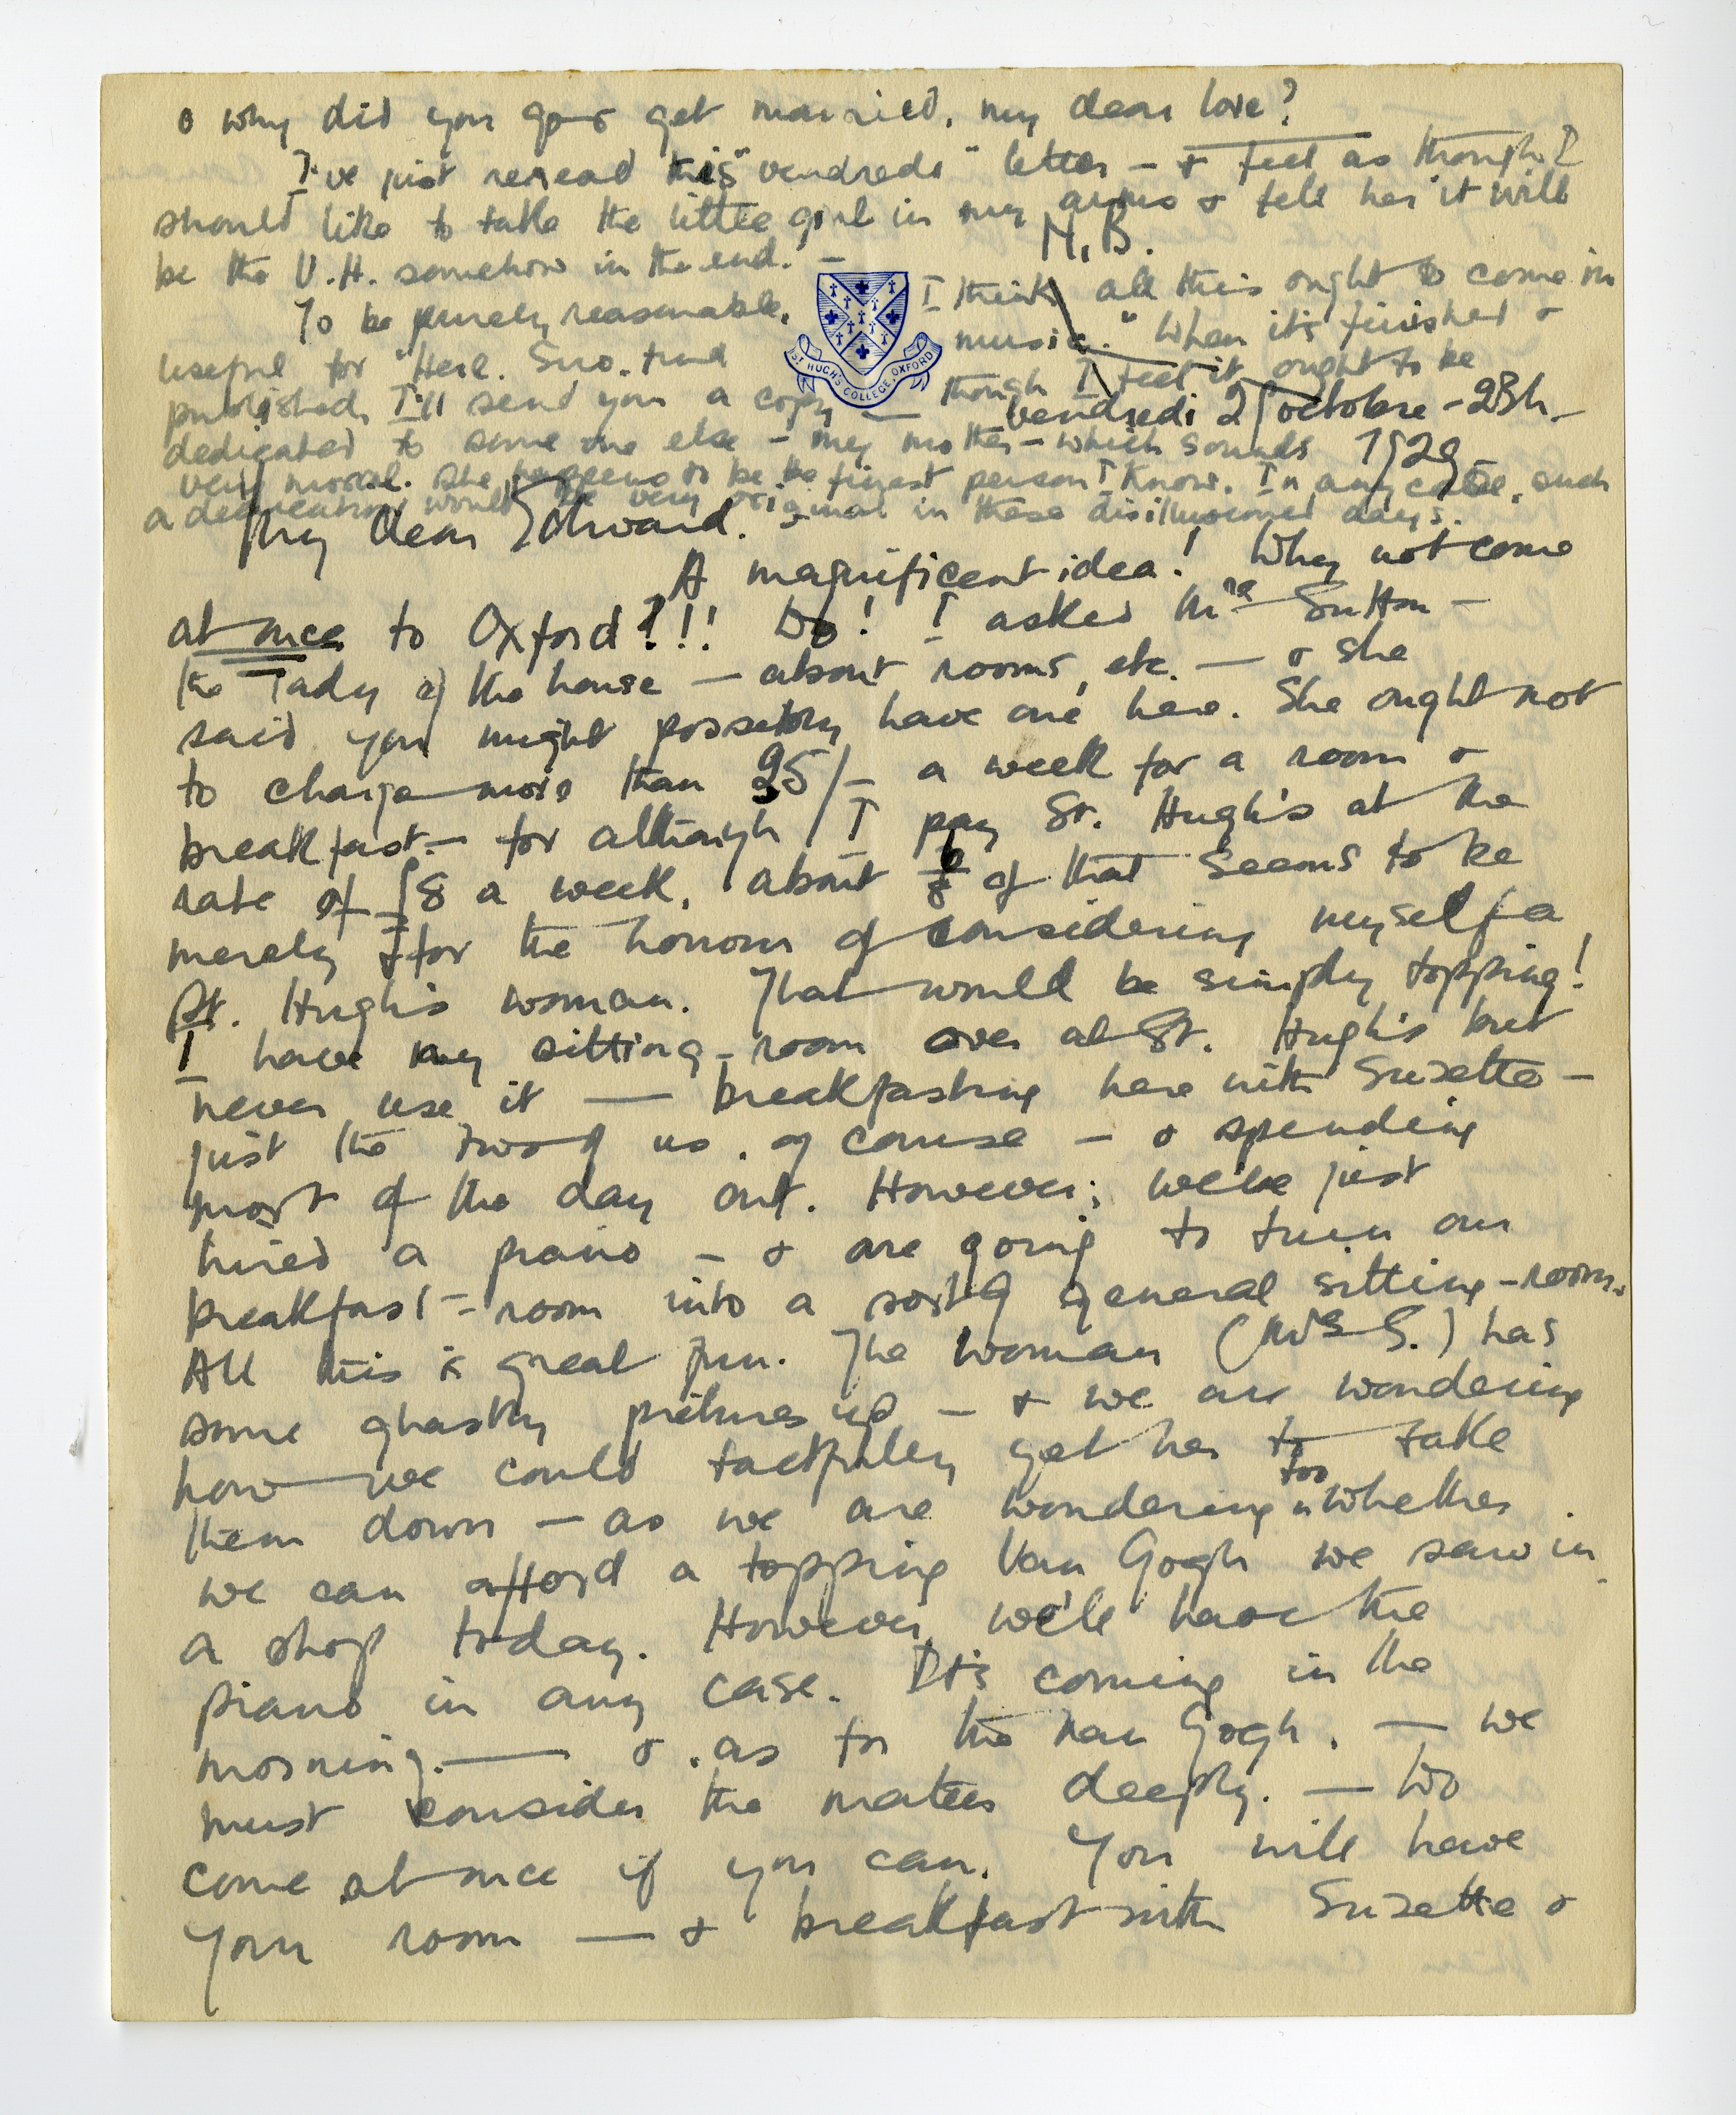 o why did you go & get married, my dear love?
I've just reread this "vendredi" letter – & feel as though I
should like to take the little girl in my arms & tell her it will
be the V.H. somehow in the end." –
N.B.
To be purely reasonable, I think all this ought to come in
useful for "Heil. music." When it's finished &
published, I'll send you a copy — though I feel it ought to be
dedicated to some one else – my mother – which sounds
very moral. She happens to be the finest person I know. In any case, such
a dedication would be very original in these disillusioned days.
ST HUGH'S COLLEGE, OXFORD
vendredi octobre – 23h –
1929 –
My dear Edward. –
A magnificent idea! Why not come
at once to Oxford?!!! Do! I asked Mrs Sutton –
the Lady of the house – about rooms, etc. — & she
said you might possibly have one here. She ought not
to charge more than 25/– a week for a room &
breakfast. – for although I pay St. Hugh's at the
rate of £8 a week, about of that seems to be
merely for the honour of considering myself a
St. Hugh's woman. That would be simply topping!
I have my sitting-room over at St. Hugh's but
never use it — breakfasting here with Suzette –
just the two of us, of course – & spending
most of the day out. However, we've just
hired a piano – & are going to turn our
breakfast-room into a sort of general sitting-room.
All this is great fun. The woman (Mrs S.) has
some ghastly pictures up – & we are wondering
how we could tactfully get her to take
them down – as we are wondering too whether
we can afford a topping Van Gogh we saw in
a shop today. However, we'll have the
piano in any case. It's coming in the
morning. — & as for the Van Gogh, — we
must consider the matter deeply. — Do
come at once if you can. You will have
your room — & breakfast with Suzette &